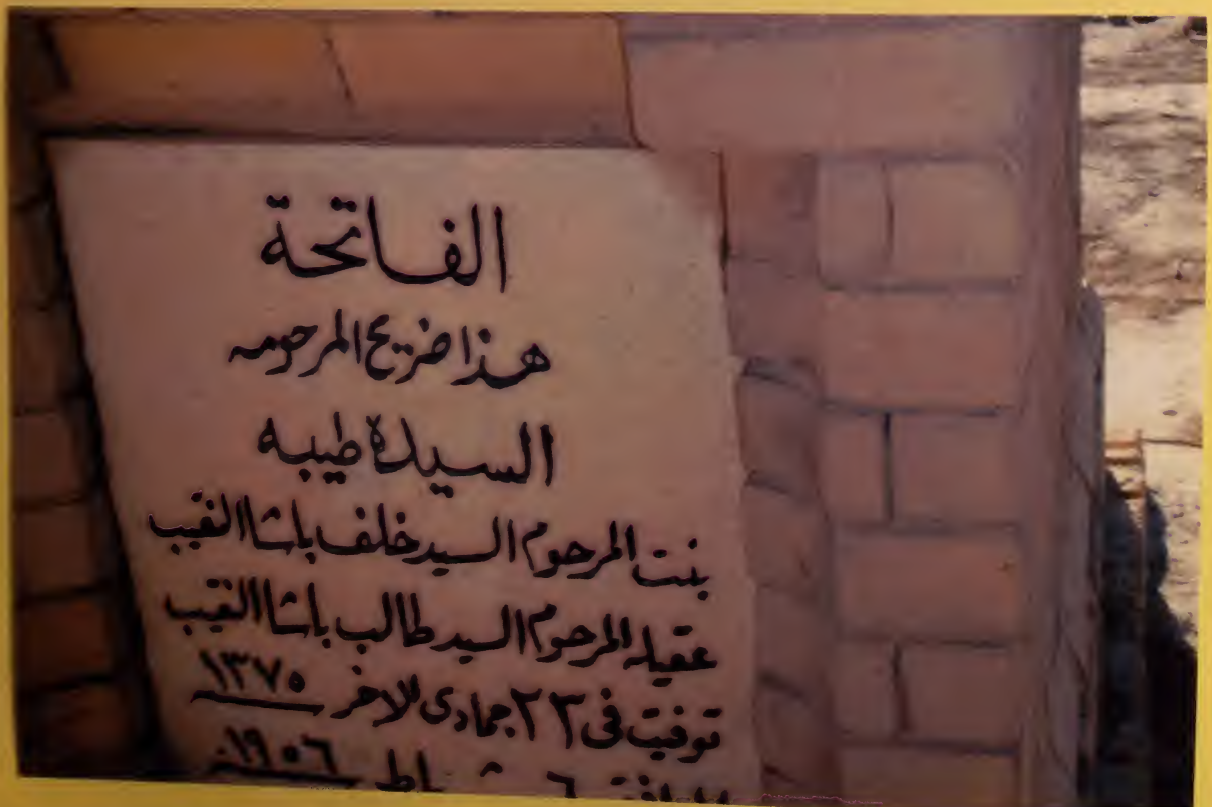 الفاتحة
هذا ضريح المرحومه
السيدة طيبه
بنت المرحوم السيد خلف باشا النقيب
عقيلة المرحوم السيد طالب باشا النقيب
توفيت في ٢٣ جمادى الاخر ١٣٧٥
٦ شباط ١٩٥٦